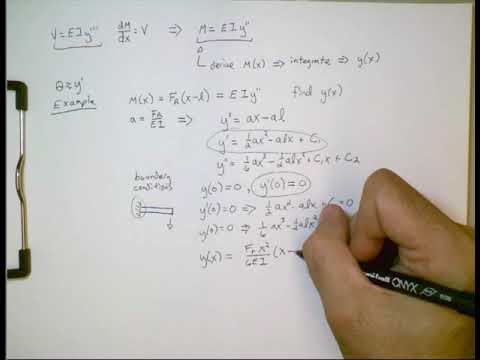 V = EIy''' dM/dx = V ⇒ M = EIy''
derive M(x) ⇒ integrate ⇒ y(x)
θ ≈ y'
Example
M(x) = F_A(x-l) = EIy'' find y(x)
a = F_A/EI ⇒ y'' = ax - al
y' = 1/2 ax² - alx + C₁
y'' = 1/6 ax³ - 1/2 alx² + C₁x + C₂
boundary
conditions
y(0) = 0, y'(0) = 0
y'(0) = 0 ⇒ 1/2 ax² - alx + C = 0
y(0) = 0 ⇒ 1/6 ax³ - 1/2 alx²
y(x) = F_A x²/6EI (x -
uniball ONYX